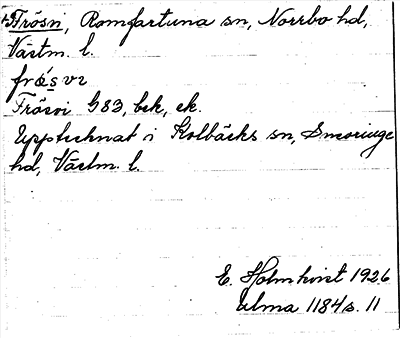 Frösvi, Romfartuna sn, Norrbo hd,
Västm. l.
frǿsvi
Frösvi G83, bek, ek.
Upptecknat i Kolbäcks sn, Snevringe
hd, Västm. l.
E. Holmkvist 1926
Ulma 1184 s. 11